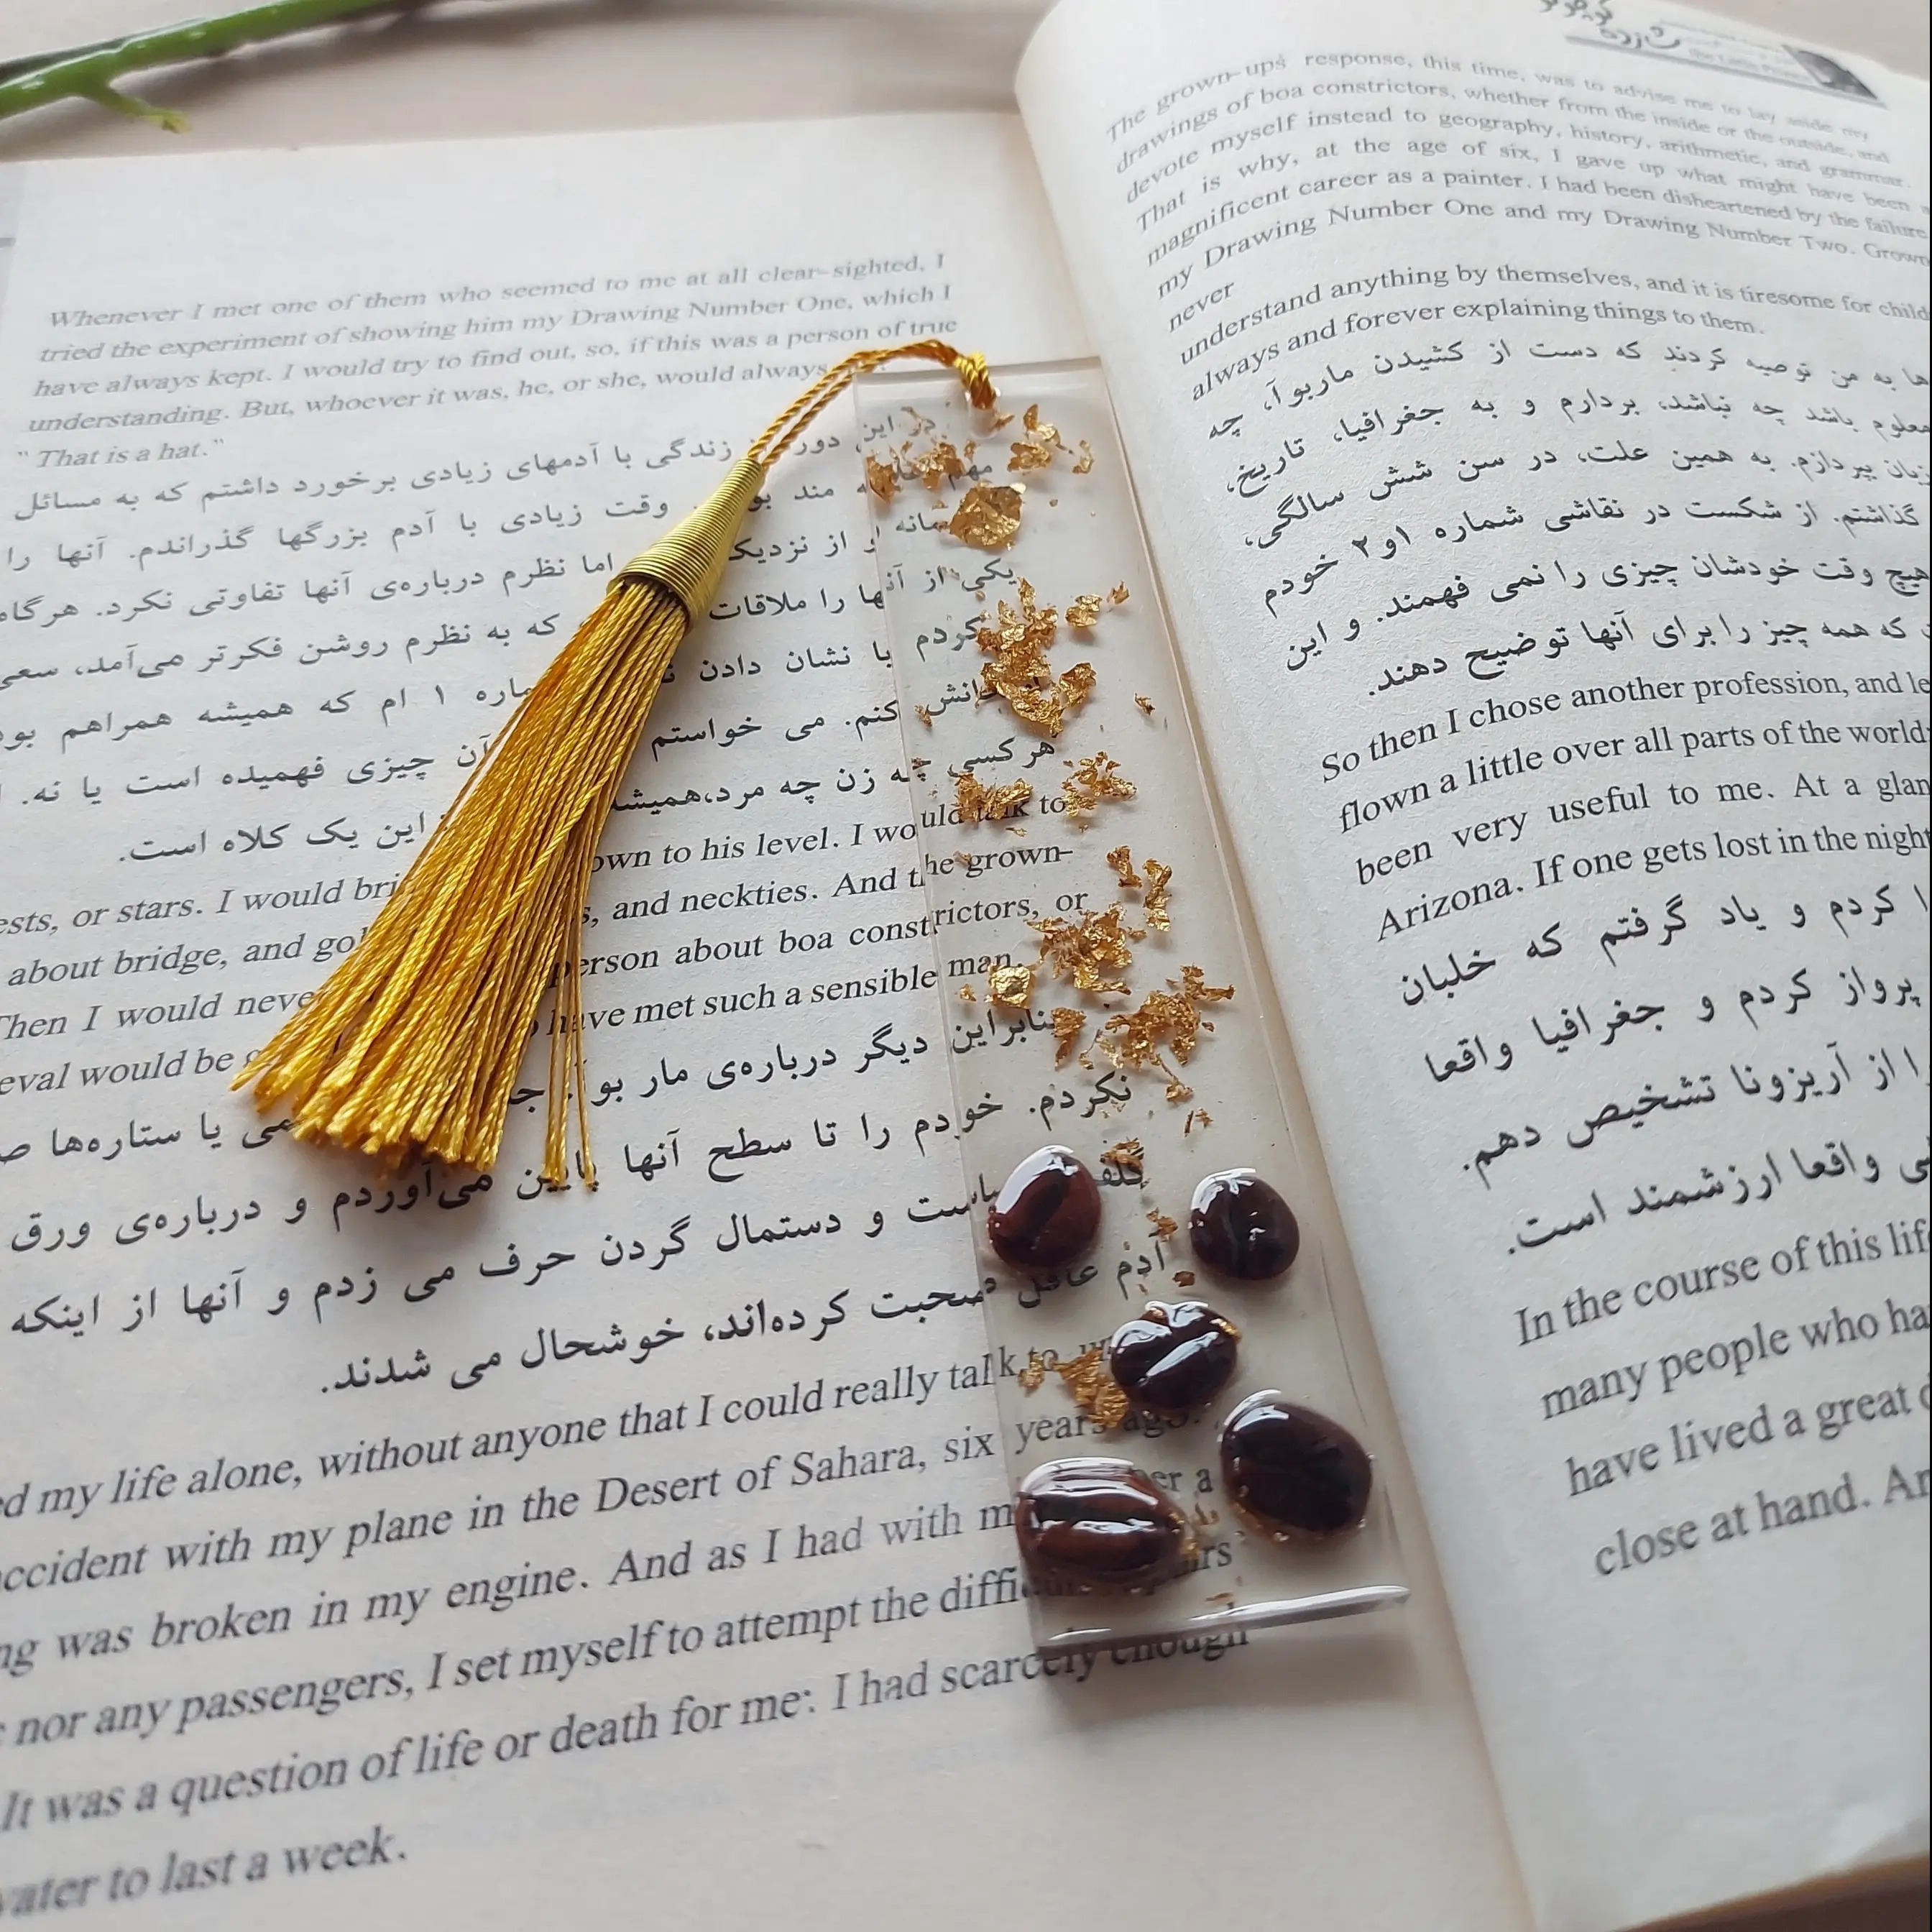 The grown-ups response, this time, was to advise me to lay aside my
drawings of boa constrictors, whether from the inside or the outside, and
devote myself instead to geography, history, arithmetic, and grammar.
That is why, at the age of six, I gave up what might have been a
magnificent career as a painter. I had been disheartened by the failure
my Drawing Number One and my Drawing Number Two. Grown
never
understand anything by themselves, and it is tiresome for child
always and forever explaining things to them.
ها به من توصیه کردند که دست از کشیدن ماربوآ، چه
معلوم باشد چه نباشد، بردارم و به جغرافیا، تاریخ،
زبان بپردازم. به همین علت، در سن شش سالگی،
گذاشتم. از شکست در نقاشی شماره ۱و۲ خودم
هیچ وقت خودشان چیزی را نمی فهمند. و این
که همه چیز را برای آنها توضیح دهند.
So then I chose another profession, and le
flown a little over all parts of the world
been very useful to me. At a glan
Arizona. If one gets lost in the night
کردم و یاد گرفتم که خلبان
پرواز کردم و جغرافیا واقعا
را از آریزونا تشخیص دهم.
واقعا ارزشمند است.
In the course of this lif
many people who ha
have lived a great d
close at hand. An
Whenever I met one of them who seemed to me at all clear-sighted, I
tried the experiment of showing him my Drawing Number One, which I
have always kept. I would try to find out, so, if this was a person of true
understanding. But, whoever it was, he, or she, would always
" That is a hat."
در این دور زندگی با آدمهای زیادی برخورد داشتم که به مسائل
مهم مند بو وقت زیادی با آدم بزرگها گذراندم. آنها را
از نزدیک اما نظرم درباره‌ی آنها تفاوتی نکرد. هرگاه
یکی از آنها را ملاقات که به نظرم روشن فکرتر می‌آمد، سعی
کردم با نشان دادن ماره ۱ ام که همیشه همراهم بود
کنم. می خواستم آن چیزی فهمیده است یا نه.
هر کسی چه زن چه مرد،همیشه این یک کلاه است.
ests, or stars. I would bri own to his level. I would talk to
about bridge, and gol s, and neckties. And the grown-
Then I would neve person about boa constrictors, or
eval would be have met such a sensible man.
بنابراین دیگر درباره‌ی مار بوآ، یا ستاره‌ها
نکردم. خودم را تا سطح آنها پایین می‌آوردم و درباره‌ی ورق
گلف و دستمال گردن حرف می زدم و آنها از اینکه
آدم صحبت کرده‌اند، خوشحال می شدند.
ed my life alone, without anyone that I could really talk to
accident with my plane in the Desert of Sahara, six years ago.
ng was broken in my engine. And as I had with m er a
nor any passengers, I set myself to attempt the diffi
It was a question of life or death for me: I had scarcely enough
water to last a week.